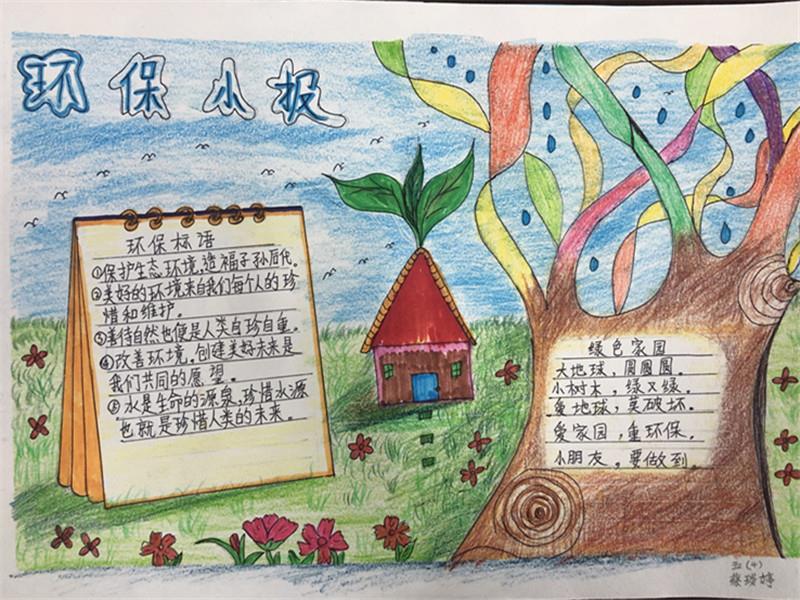 环保小报
环保标语
①保护生态环境,造福子孙后代。
②美好的环境来自我们每个人的珍
惜和维护。
③善待自然也便是人类自珍自重。
④改善环境,创建美好未来是
我们共同的愿望。
⑤水是生命的源泉,珍惜水源
也就是珍惜人类的未来。
绿色家园
大地球,圆圆圆。
小树木,绿又绿。
爱地球,莫破坏。
爱家园,重环保。
小朋友,要做到。
五(4)
蔡瑷婷